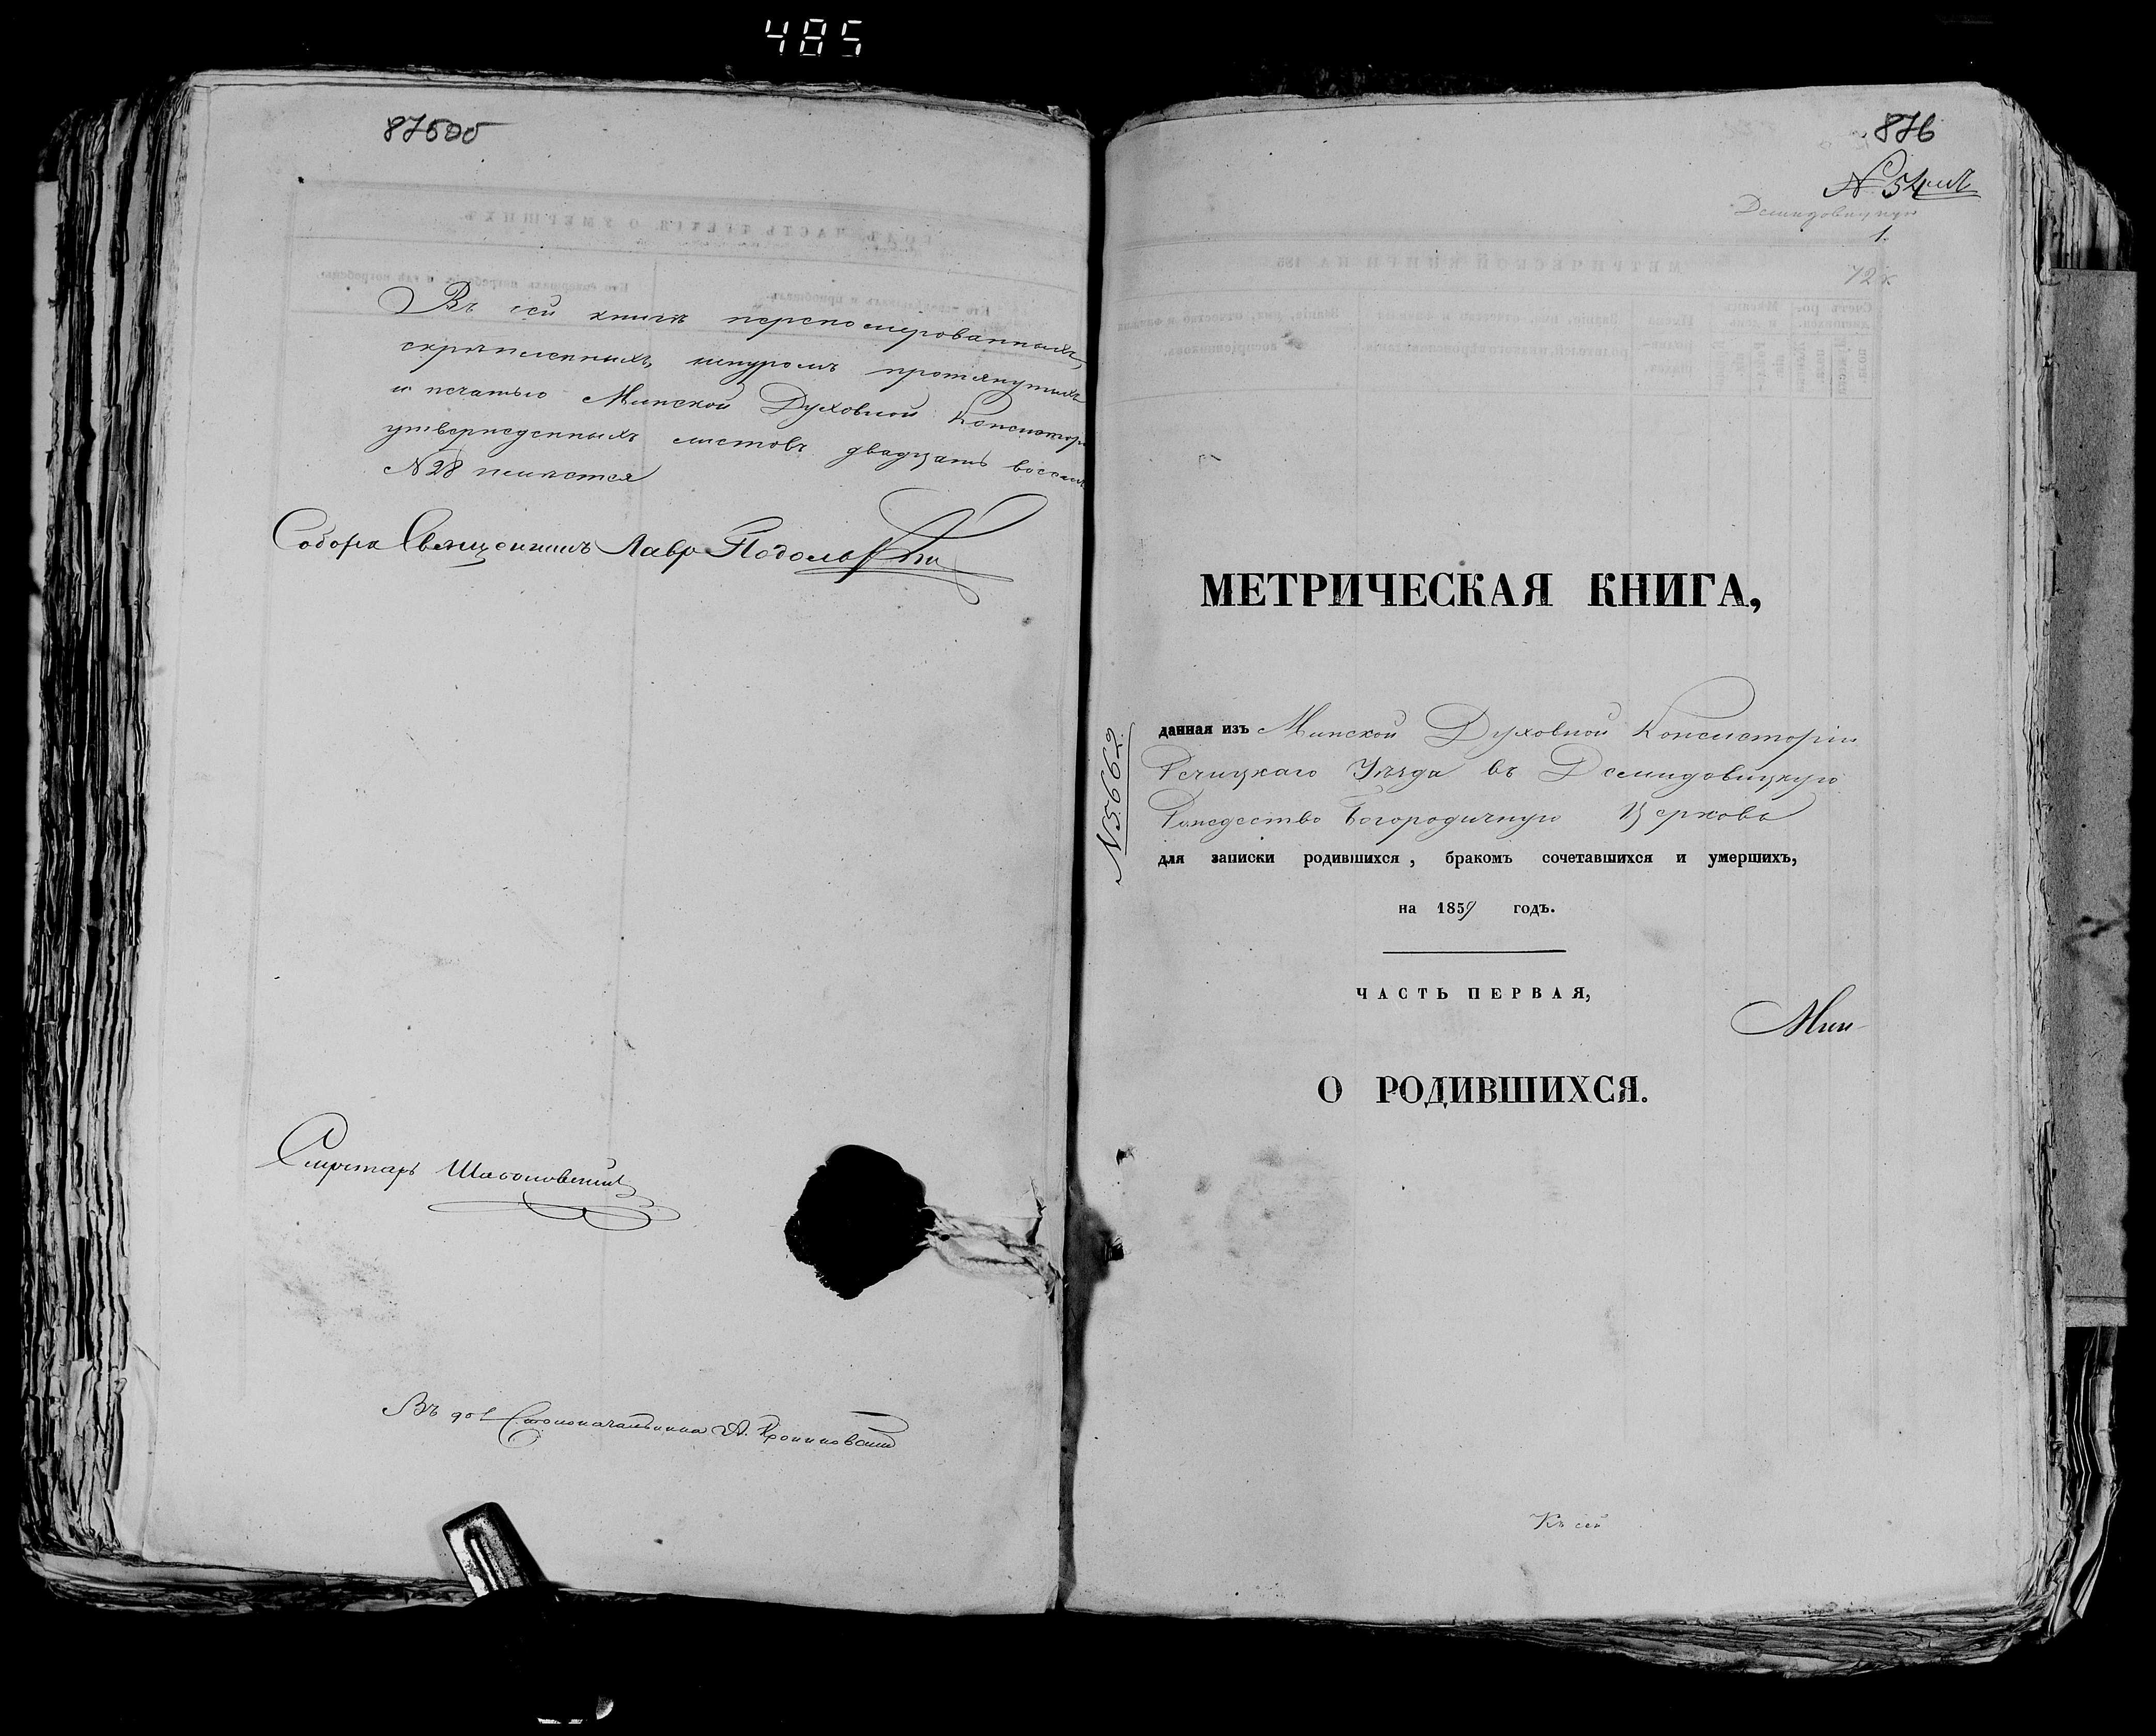 485
875об
Въ сей книгѣ перенумерованныхъ,
скрѣпленныхъ, шнуромъ протянутыхъ
и печатью Минской Духовной Консистор
утвержденныхъ листовъ двадцать восемь
N 28 имѣется
Собора Священникъ Лавръ
Секретарь
Въ дол. Столоначальника А.
876
N. 54
Демидовицкую
1.
72
МЕТРИЧЕСКАЯ КНИГА,
N 5662
данная изъ Минской Духовной Консисторіи
Речицкаго Уѣзда въ Демидовицкую
Рождество Богородичную Церковь
для записки родившихся, бракомъ сочетавшихся и умершихъ,
на 1859 годъ.
ЧАСТЬ ПЕРВАЯ,
Мин-
О РОДИВШИХСЯ.
Къ сей